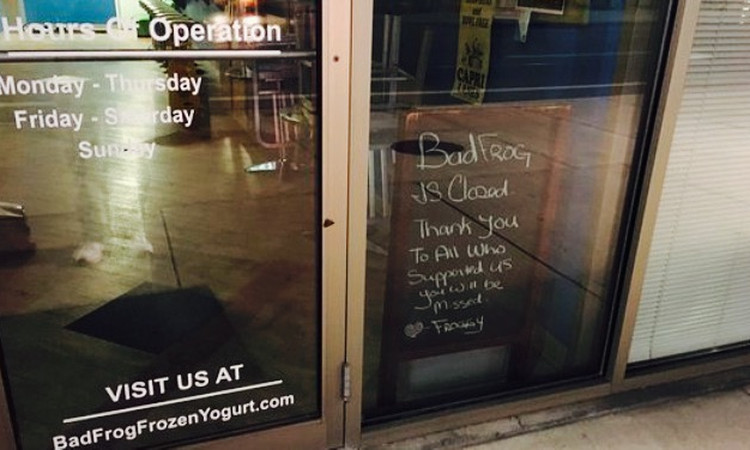 Hours Of Operation
Monday - Thursday
Friday - Saturday
Sunday
VISIT US AT
BadFrogFrozenYogurt.com
CAPRI
Bad FROG
IS Closed.
Thank You
To All Who
Supported us
you will be
missed.
- FROGGY